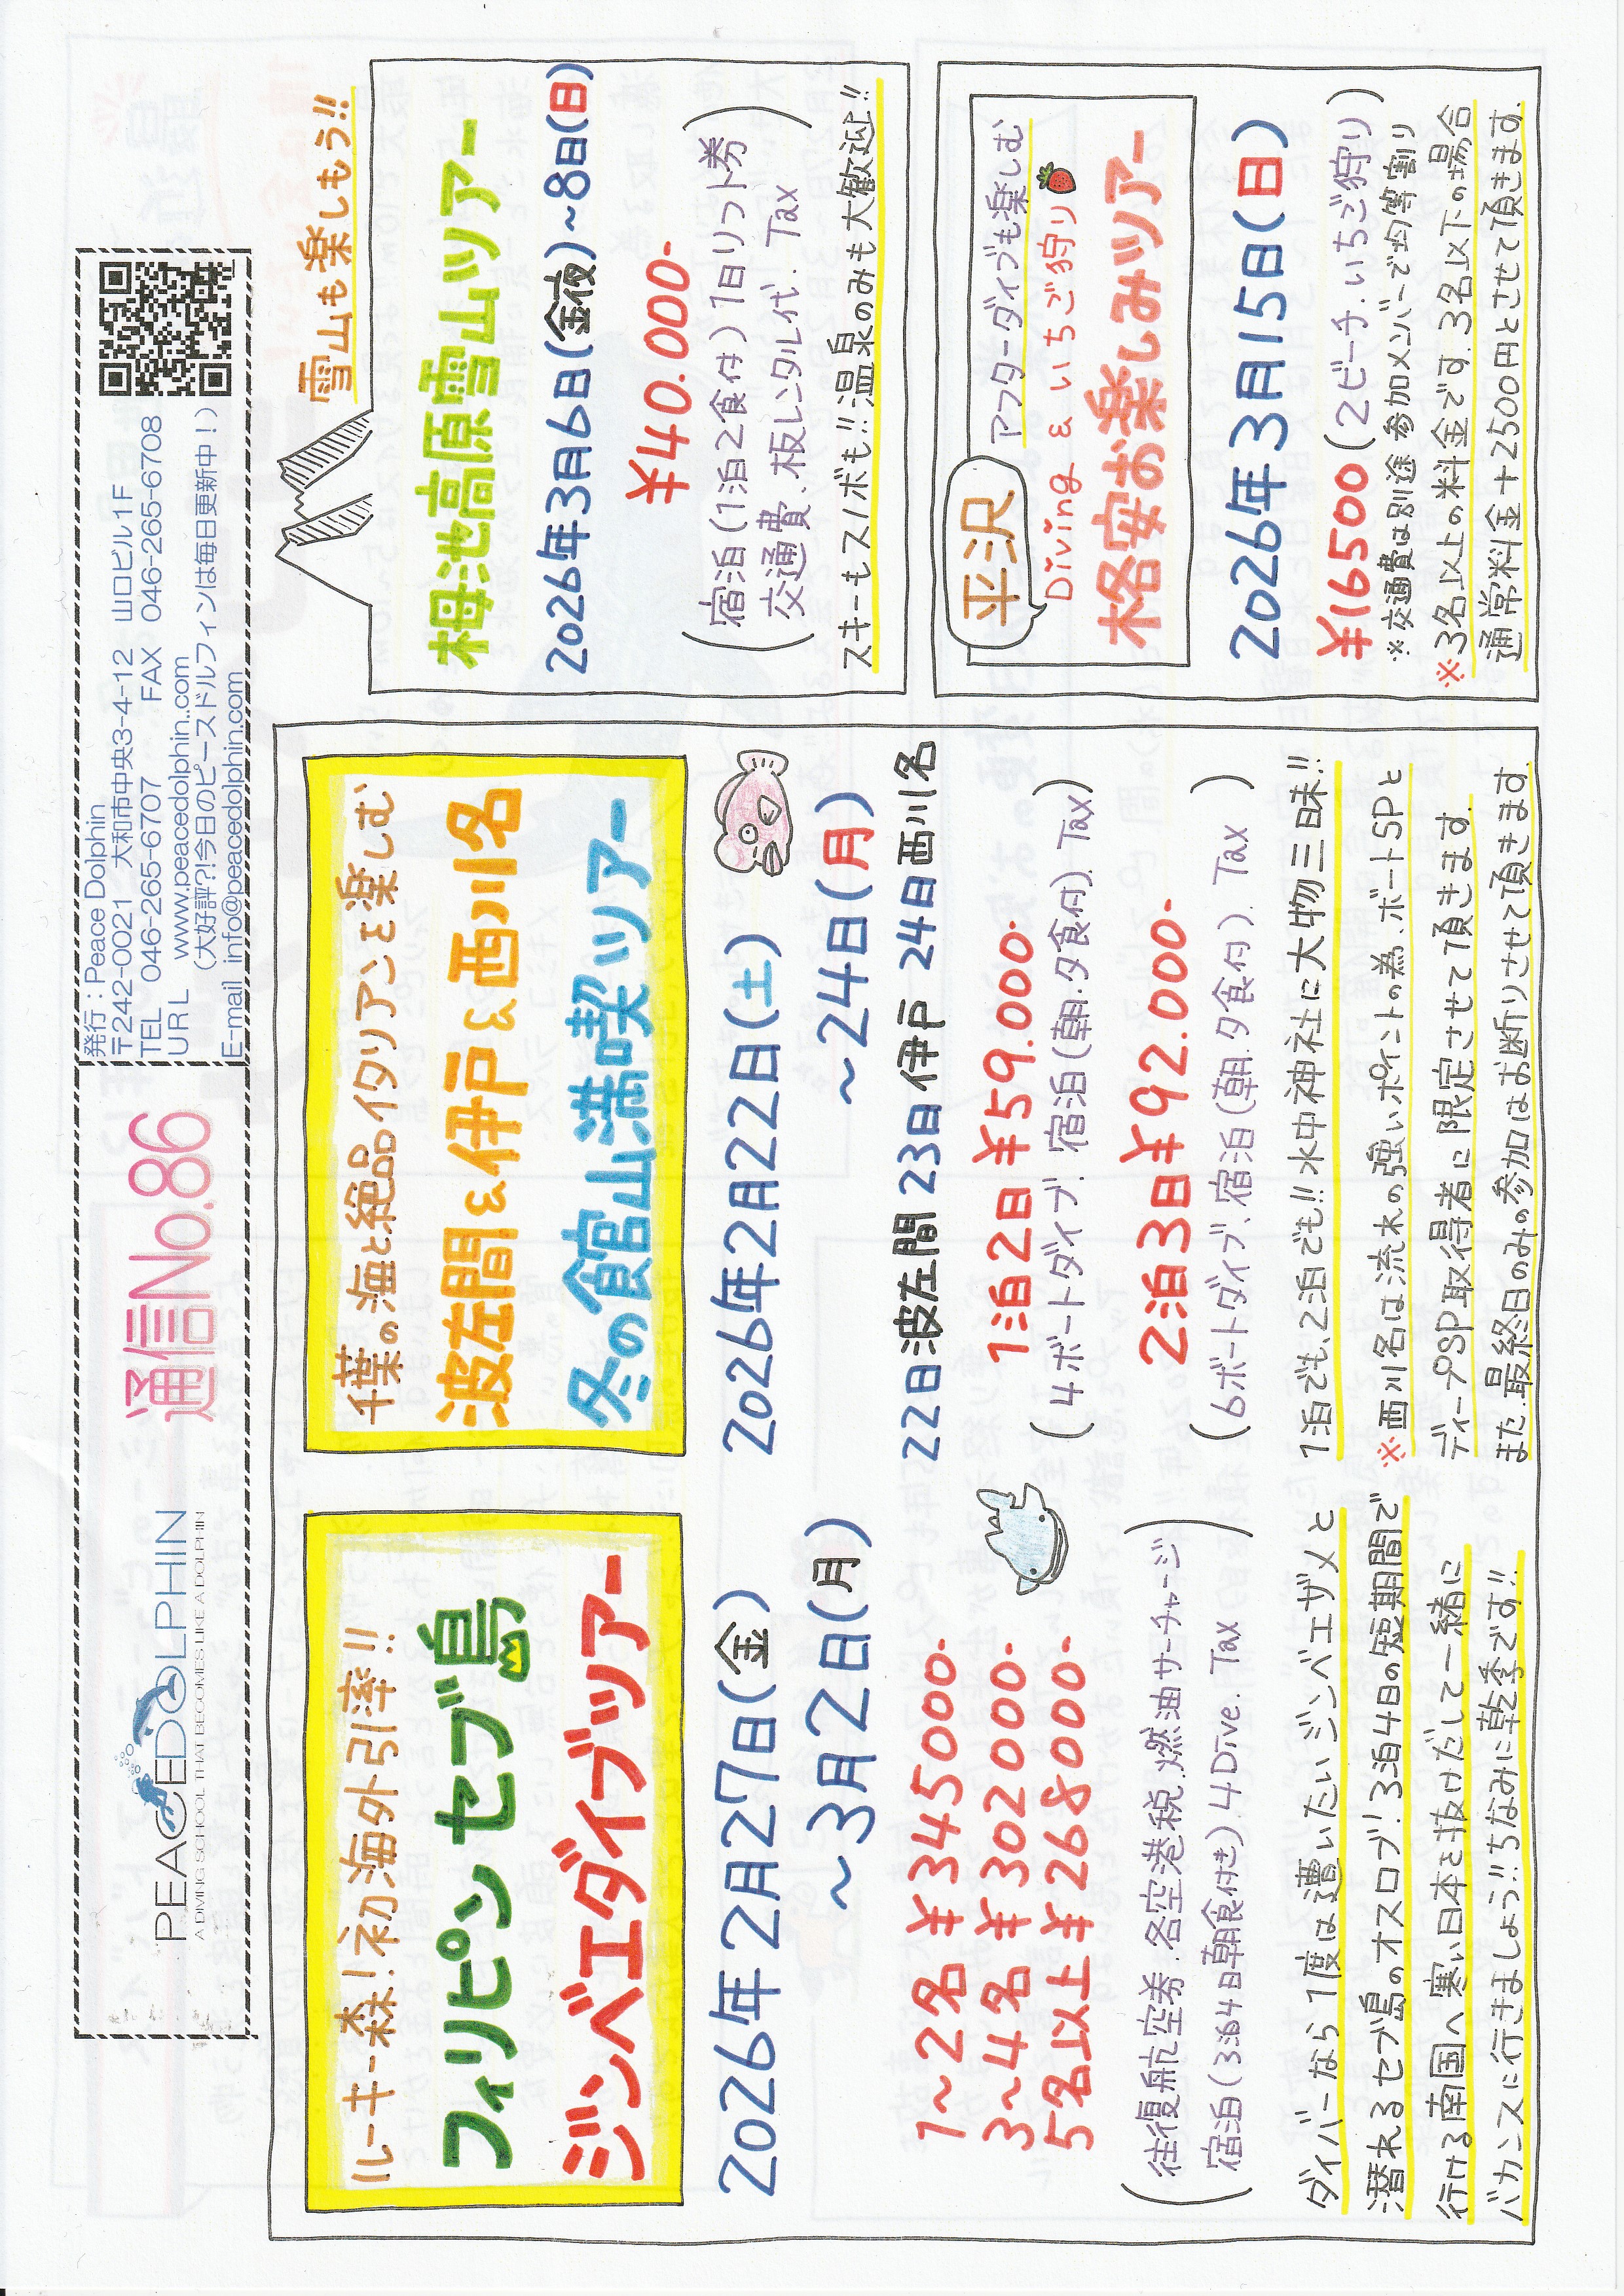 PEACEDOLPHIN
A DIVING SCHOOL THAT BECOMES LIKE A DOLPHIN
通信No.86
発行：Peace Dolphin
〒242-0021　大和市中央3-4-12　山口ビル1F
TEL　046-265-6707　　FAX　046-265-6708
URL　www.peacedolphin.com
（大好評?!今日のピースドルフィンは毎日更新中！）
E-mail info@peacedolphin.com
ルーキー森!初海外引率!!
フィリピン セブ島
ジンベエダイブツアー
2026年2月27日(金)
～3月2日(月)
1～2名 ¥345000-
3～4名 ¥302000-
5名以上 ¥268000-
(往復航空券.各空港税.燃油サーチャージ
宿泊(3泊4日朝食付き)4Dive.Tax)
ダイバーなら1度は遭いたいジンベエザメと
潜れるセブ島のオスロブ!3泊4日の短期間で
行ける南国へ寒い日本を抜けだして一緒に
バカンスに行きましょう!!ちなみに乾季です!!
千葉の海と絶品イタリアンを楽しむ
波左間&伊戸&西川名
冬の館山満喫ツアー
2026年2月22日(土)
～24日(月)
22日波左間 23日伊戸 24日西川名
1泊2日¥59.000-
(4ボートダイブ.宿泊(朝.夕食付).Tax)
2泊3日¥92.000-
(6ボートダイブ、宿泊(朝.夕食付).Tax)
1泊でも、2泊でも!!水中神社に大物三昧!!
※西川名は流れの強いポイントの為、ボートSPと
ディープSP取得者に限定させて頂きます.
また.最終日のみの参加はお断りさせて頂きます.
雪山も楽しもう!!
栂池高原雪山ツアー
2026年3月6日(金夜)~8日(日)
¥40.000-
(宿泊(1泊2食付)1日リフト券
交通費、板レンタル代.Tax)
スキーもスノボも!!温泉のみも大歓迎!!
平沢
アフターダイブも楽しむ
Diving & いちご狩り
格安お楽しみツアー
2026年3月15日(日)
¥16500(2ビーチ.いちご狩り)
※交通費は別途 参加メンバーで均等割り
※3名以上の料金です.3名以下の場合
通常料金＋2500円とさせて頂きます.